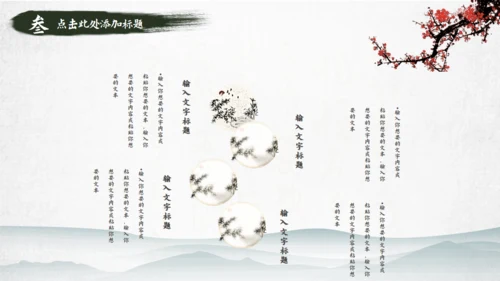 叁 点击此处添加标题
輸入文字标题
·輸入你想要的文字内容或
粘贴你想要的文本，輸入你
想要的文字内容或粘贴你想
要的文本
輸入文字标题
·輸入你想要的文字内容或
粘贴你想要的文本，輸入你
想要的文字内容或粘贴你想
要的文本
輸入文字标题
·輸入你想要的文字内容或
粘贴你想要的文本，輸入你
想要的文字内容或粘贴你想
要的文本
輸入文字标题
·輸入你想要的文字内容或
粘贴你想要的文本，輸入你
想要的文字内容或粘贴你想
要的文本